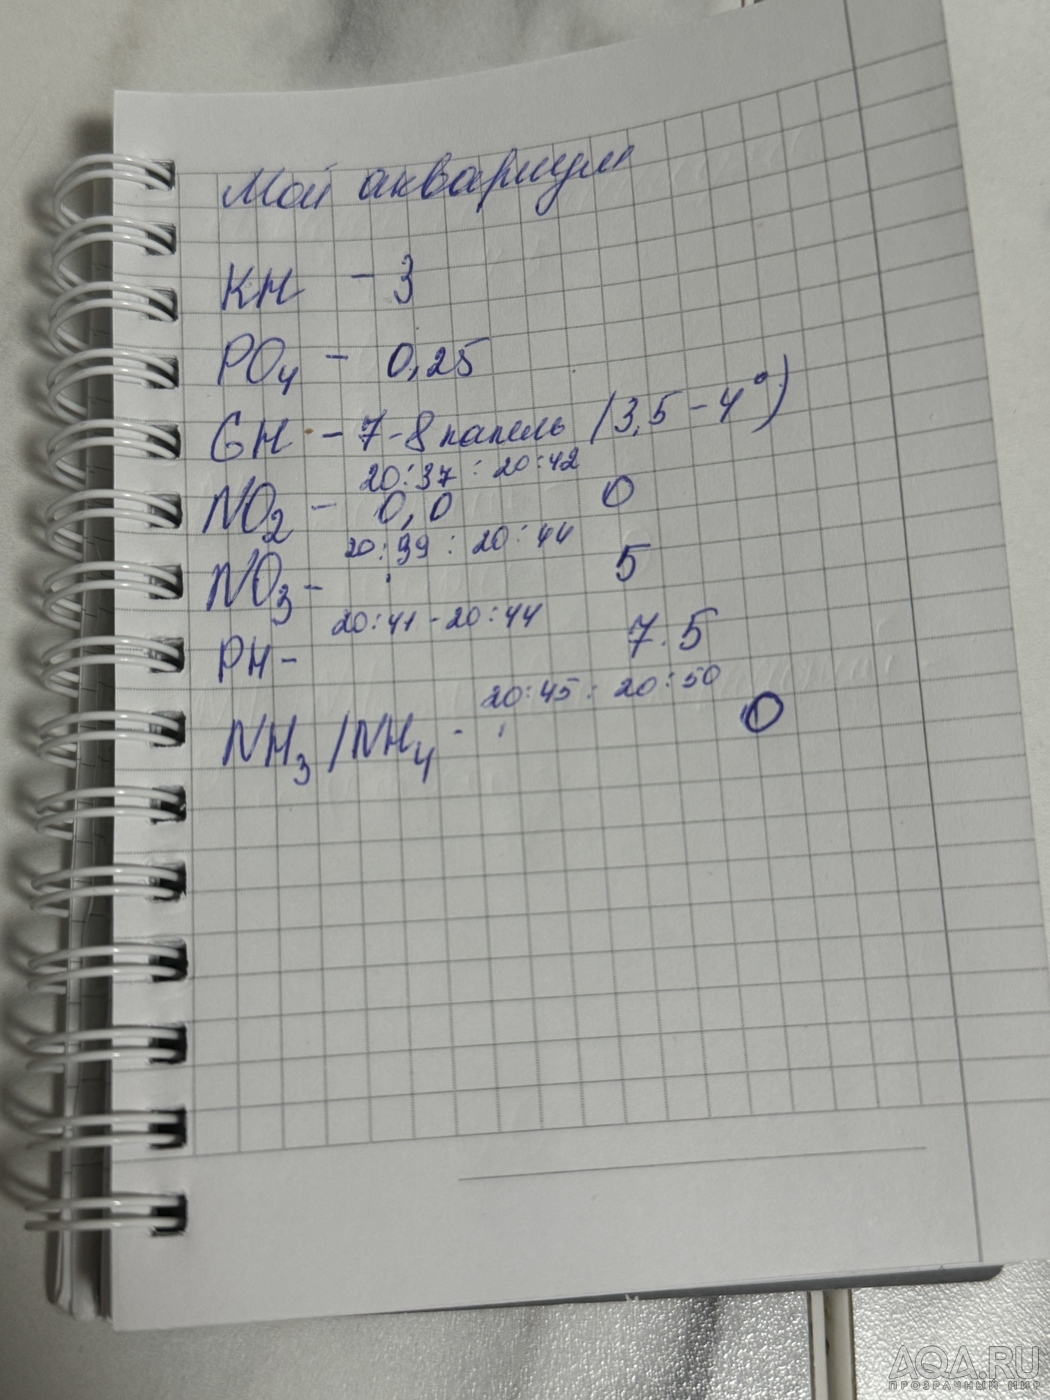 Мой аквариум
KH - 3
PO4 - 0,25
GH - 7-8 капель (3,5-4°)
20:37 : 20:42
NO2 - 0,0 0
20:39 : 20:44
NO3 - 5
20:41 - 20:44
PH - 7.5
20:45 : 20:50
NH3/NH4 - 0
AQA.RU
ПРОЗРАЧНЫЙ МИР